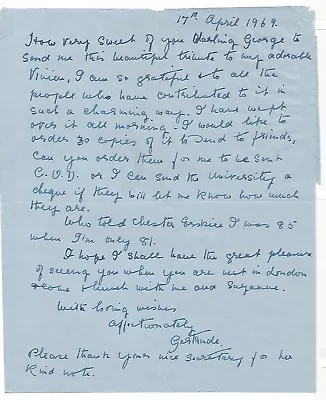 17th April 1969.
How very sweet of you Darling George to
send me this beautiful tribute to my adorable
Vivien, I am so grateful & to all the
people who have contributed to it in
such a charming way. I have wept
over it all morning. I would like to
order 30 copies of it to send to friends,
can you order them for me to be sent
C.O.D. or I can send the University a
cheque if they will let me know how much
they are.
Who told Chester Erskine I was 85
when I'm only 81.
I hope I shall have the great pleasure
of seeing you when you are next in London
& come & lunch with me and Suzanne.
With loving wishes
affectionately
Gertrude.
Please thank your nice secretary for her
kind note.